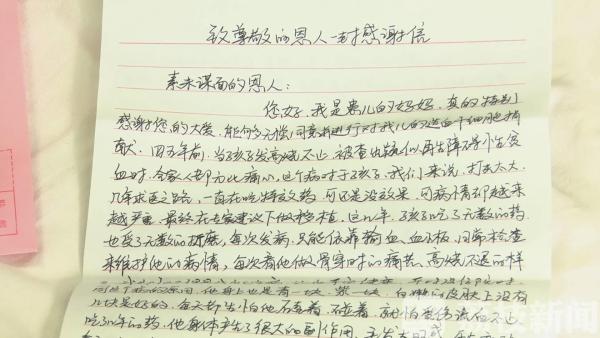 致尊敬的恩人一封感谢信
素未谋面的恩人：
您好，我是患儿的妈妈，真的特别
感谢您的大爱，能够无偿进行对我儿的造血干细胞捐
献。四五年前，当孩子发高烧不止，被查出疑似再生障碍性贫
血时，令家人都为此痛心，这个病对于孩子，我们来说，打击太大。
几年求医之路，一直在吃特效药，可还是没效果，可病情却越来
越严重，最终在专家建议下做移植，这几年，孩子吃了无数的药
也受了无数的折磨，每次发病，只能依靠输血、血小板，同常检查
来维护他的病情，每次看他做骨穿时的痛苦、高烧不退的样
他身上也是青一块，紫一块，白嫩的皮肤上没有
几块是好的，每天都生怕他磕着、碰着，就怕受伤流血不止
吃几年的药，他身体产生了很大的副作用，
新闻